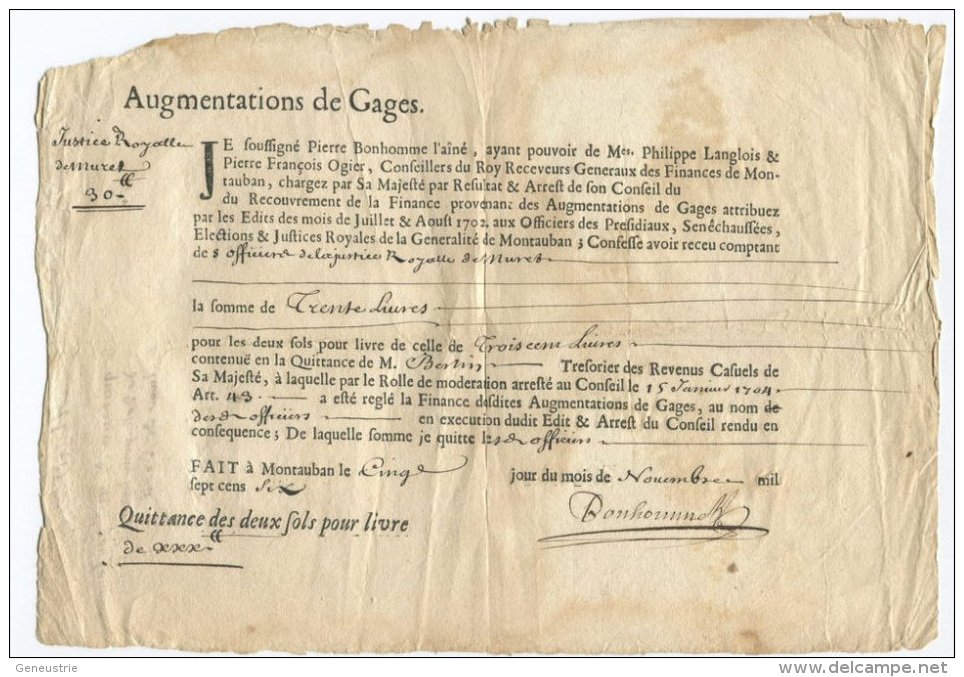 Augmentations de Gages.
Justice Royalle
de Muret
30
JE soussigné Pierre Bonhomme l'aîné, ayant pouvoir de Mes. Philippe Langlois &
Pierre François Ogier, Conseillers du Roy Receveurs Generaux des Finances de Mon-
tauban, chargez par Sa Majesté par Resultat & Arrest de son Conseil du
du Recouvrement de la Finance provenant des Augmentations de Gages attribuez
par les Edits des mois de Juillet & Aoust 1702. aux Officiers des Presidiaux, Senêchaussées,
Elections & Justices Royales de la Generalité de Montauban ; Confesse avoir receu comptant
des officiers de la justice Royalle de Muret
la somme de Trente Livres
pour les deux sols pour livre de celle de Trois cent Livres
contenuë en la Quittance de M. Bertin Tresorier des Revenus Casuels de
Sa Majesté, à laquelle par le Rolle de moderation arresté au Conseil le 15 Janvier 1704
Art. 43 a esté reglé la Finance desdites Augmentations de Gages, au nom de
desd officiers en execution dudit Edit & Arrest du Conseil rendu en
consequence ; De laquelle somme je quitte lesd officiers
FAIT à Montauban le Cinqe jour du mois de Novembre mil
sept cens Six
Bonhomme
Quittance des deux sols pour livre
de xxx
Geneustrie
www.delcampe.net